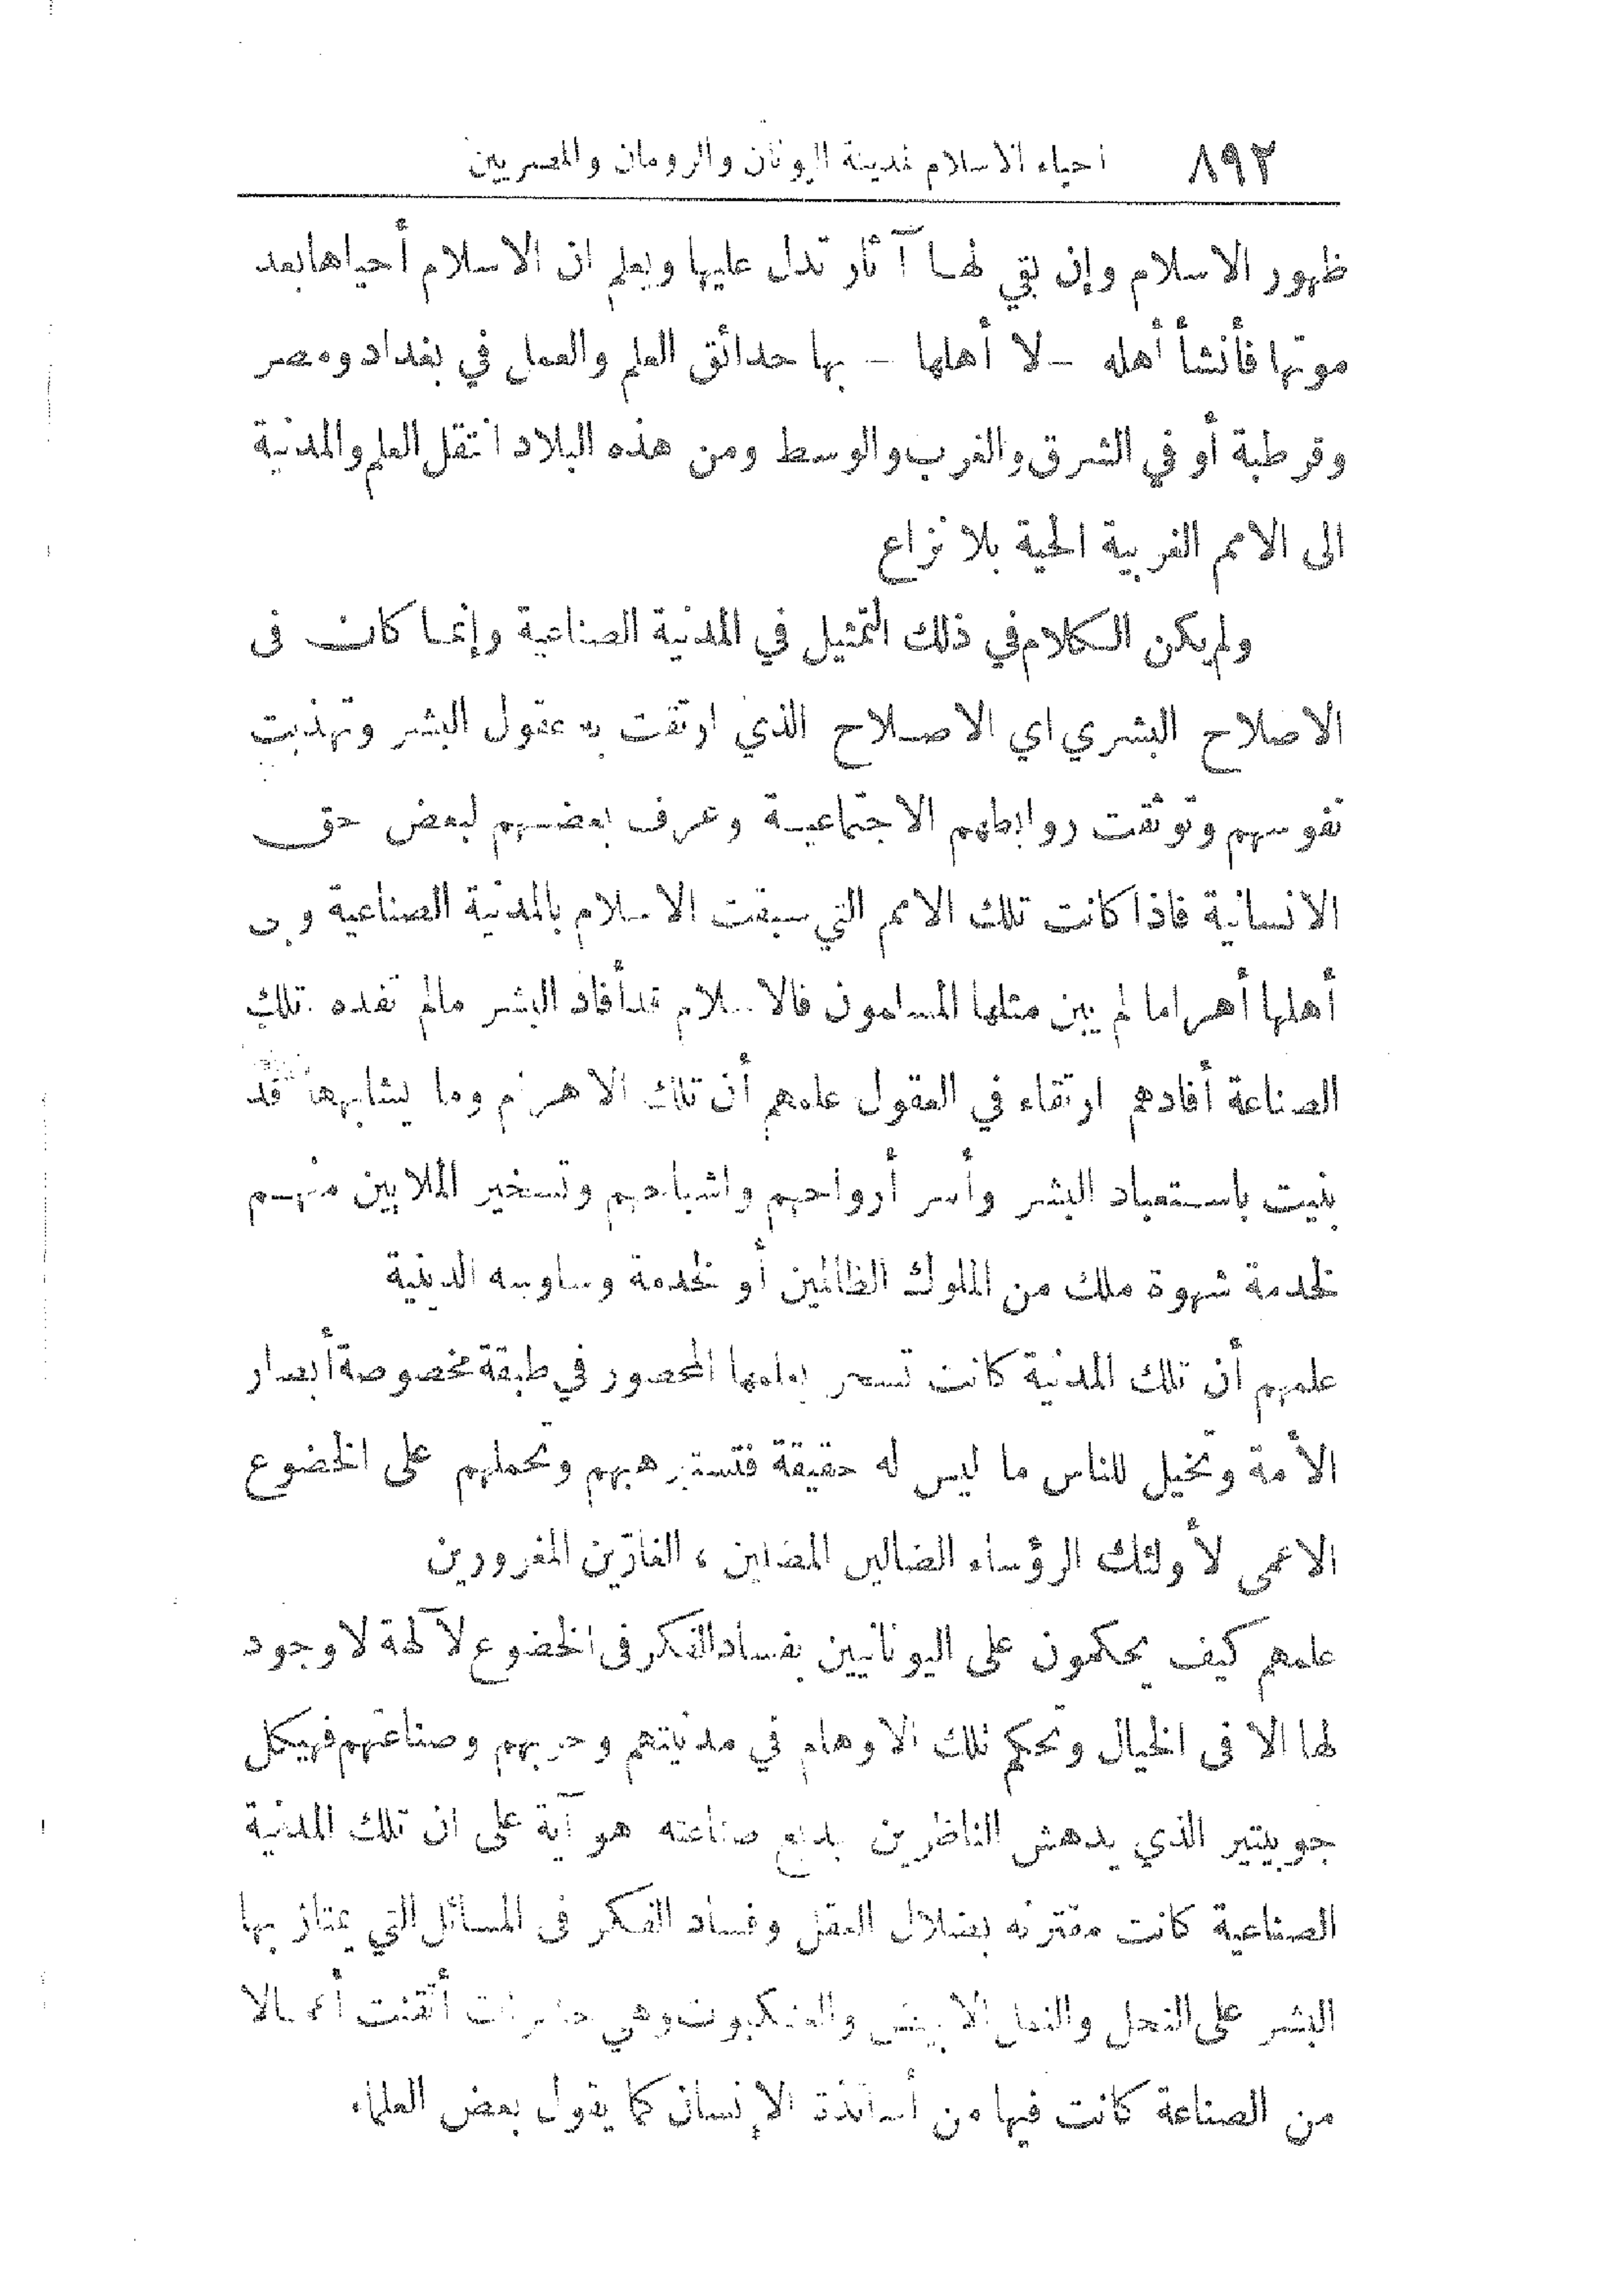 ٨٩٢ احياء الاسلام لمدينة اليونان والرومان والمصريين
ظهور الاسلام وإن بقي لها آثار تدل عليها ويعلم ان الاسلام أحياها بعد
موتها فأنشأ أهله – لا أهلها – بها حدائق العلم والعمل في بغداد ومصر
وقرطبة أو في الشرق والغرب والوسط ومن هذه البلاد انتقل العلم والمدنية
الى الامم الغربية الحية بلا نزاع
ولم يكن الكلام في ذلك التمثيل في المدنية الصناعية وإنما كان فى
الاصلاح البشري اي الاصلاح الذي ارتقت به عقول البشر وتهذبت
نفوسهم وتوثقت روابطهم الاجتماعية وعرف بعضهم لبعض حق
الانسانية فاذا كانت تلك الامم التي سبقت الاسلام بالمدنية الصناعية وبنى
أهلها أهراما لم يبن مثلها المسلمون فالاسلام قد أفاد البشر مالم تفده تلك
الصناعة أفادهم ارتقاء في العقول علمهم أن تلك الاهرام وما يشابهها قد
بنيت باستعباد البشر وأسر أرواحهم واشباحهم وتسخير الملايين منهم
لخدمة شهوة ملك من الملوك الظالمين أو لخدمة وساوسه الدينية
علمهم أن تلك المدنية كانت تسحر بعلمها المحصور في طبقة مخصوصة أبصار
الأمة وتخيل للناس ما ليس له حقيقة فتسترهبهم وتحملهم على الخضوع
الاعمى لأولئك الرؤساء الضالين المضلين ، الغارّين المغرورين
علمهم كيف يحكمون على اليونانيين بفساد الفكر فى الخضوع لآلهة لا وجود
لها الا فى الخيال وتحكم تلك الاوهام في مدنيتهم وحربهم وصناعتهم فهيكل
جوبيتير الذي يدهش الناظرين بديع صناعته هو آية على ان تلك المدنية
الصناعية كانت مقترنه بضلال العقل وفساد الفكر فى المسائل التي يمتاز بها
البشر على النحل والنمل الابيض والعنكبوت وهي حشرات أتقنت أعمالا
من الصناعة كانت فيها من أساتذة الإنسان كما يقول بعض العلماء